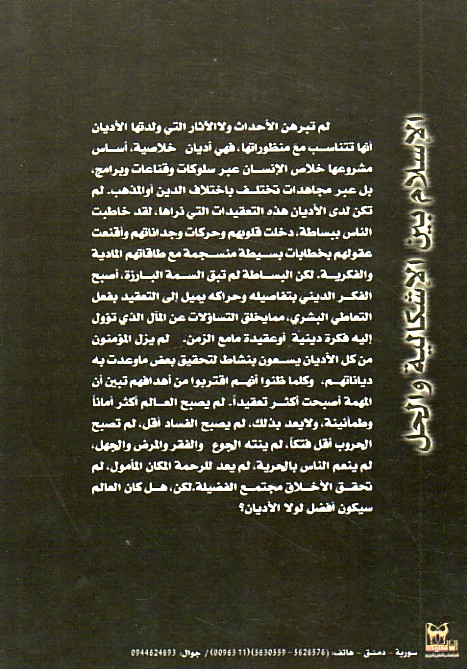 الإسلام بين الإشكالية والحل
لم تبرهن الأحداث ولا الآثار التي ولدتها الأديان
أنها تتناسب مع منظوراتها، فهي أديان خلاصية، أساس
مشروعها خلاص الإنسان عبر سلوكات وقناعات وبرامج،
بل عبر مجاهدات تختلف باختلاف الدين أوالمذهب. لم
تكن لدى الأديان هذه التعقيدات التي نراها، لقد خاطبت
الناس ببساطة، دخلت قلوبهم وحركات وجداناتهم وأقنعت
عقولهم بخطابات بسيطة منسجمة مع طاقاتهم المادية
والفكرية. لكن البساطة لم تبق السمة البارزة، أصبح
الفكر الديني بتفاصيله وحراكه يميل إلى التعقيد بفعل
التعاطي البشري، ممايخلق التساؤلات عن المآل الذي تؤول
إليه فكرة دينية أوعقيدة مامع الزمن. لم يزل المؤمنون
من كل الأديان يسعون بنشاط لتحقيق بعض ماوعدت به
دياناتهم، وكلما ظنوا أنهم اقتربوا من أهدافهم تبين أن
المهمة أصبحت أكثر تعقيداً. لم يصبح العالم أكثر أماناً
وطمأنينة، ولايعد بذلك، لم يصبح الفساد أقل، لم تصبح
الحروب أقل فتكاً، لم ينته الجوع والفقر والمرض والجهل،
لم ينعم الناس بالحرية، لم يعد للرحمة المكان المأمول، لم
تحقق الأخلاق مجتمع الفضيلة.لكن، هل كان العالم
سيكون أفضل لولا الأديان؟
سورية - دمشق - هاتف: (5626576 - 5630559)(11 00963) / جوال: 0944624693